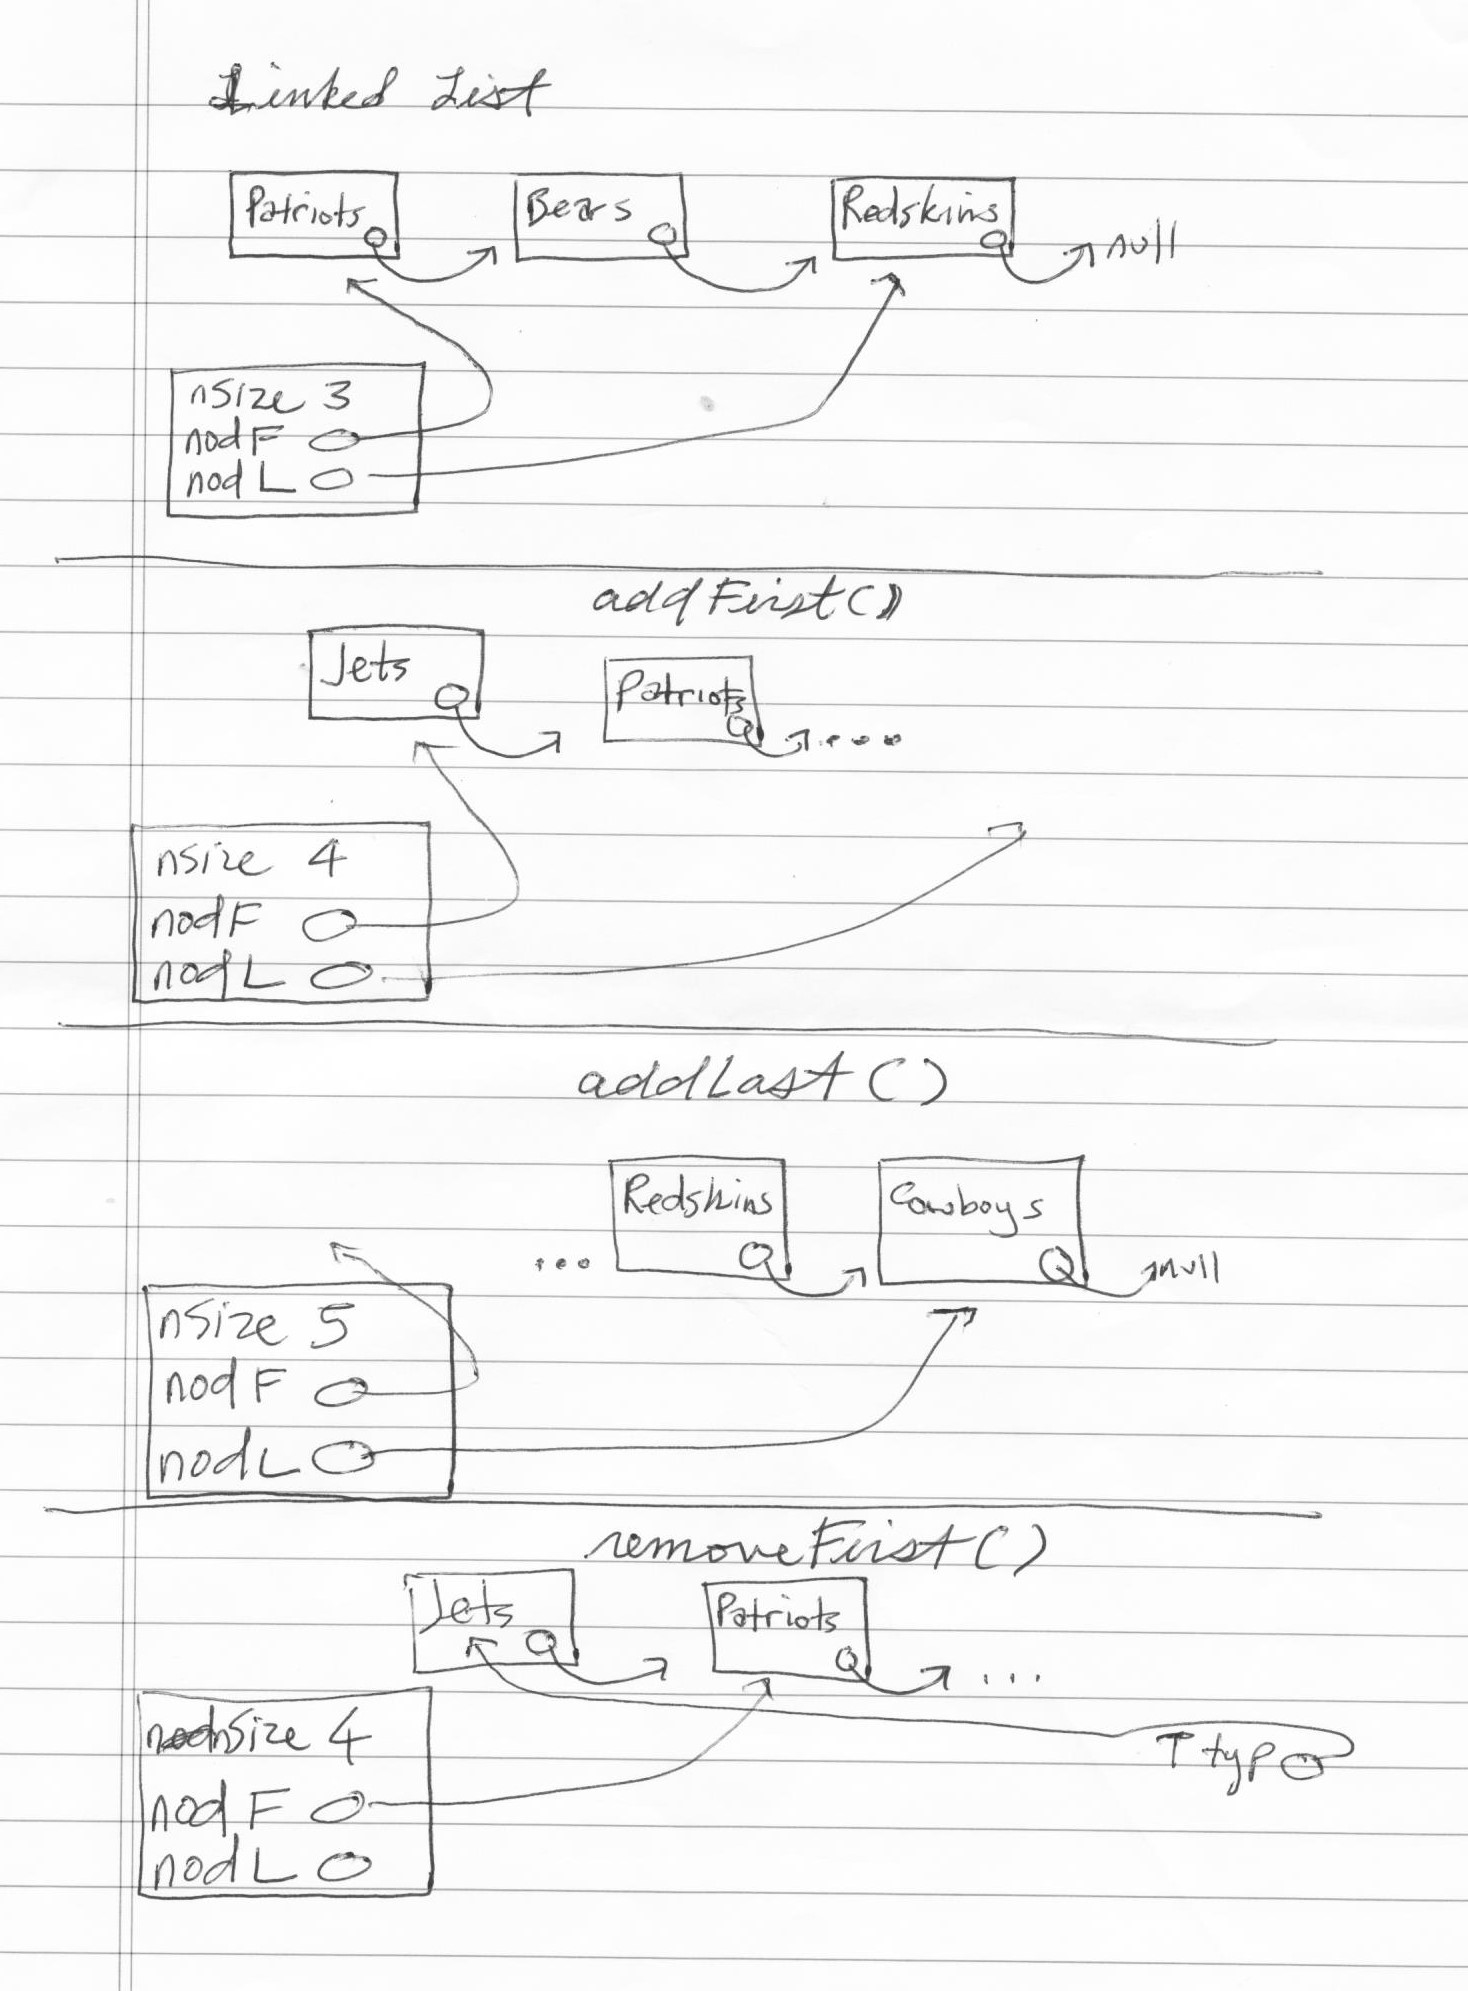 Linked List
Patriots Bears Redskins null
nSize 3
nodF
nodL
addFirst()
Jets Patriots ...
nSize 4
nodF
nodL
addLast()
... Redskins Cowboys null
nSize 5
nodF
nodL
removeFirst()
Jets Patriots ...
nSize 4
T typ
nodF
nodL